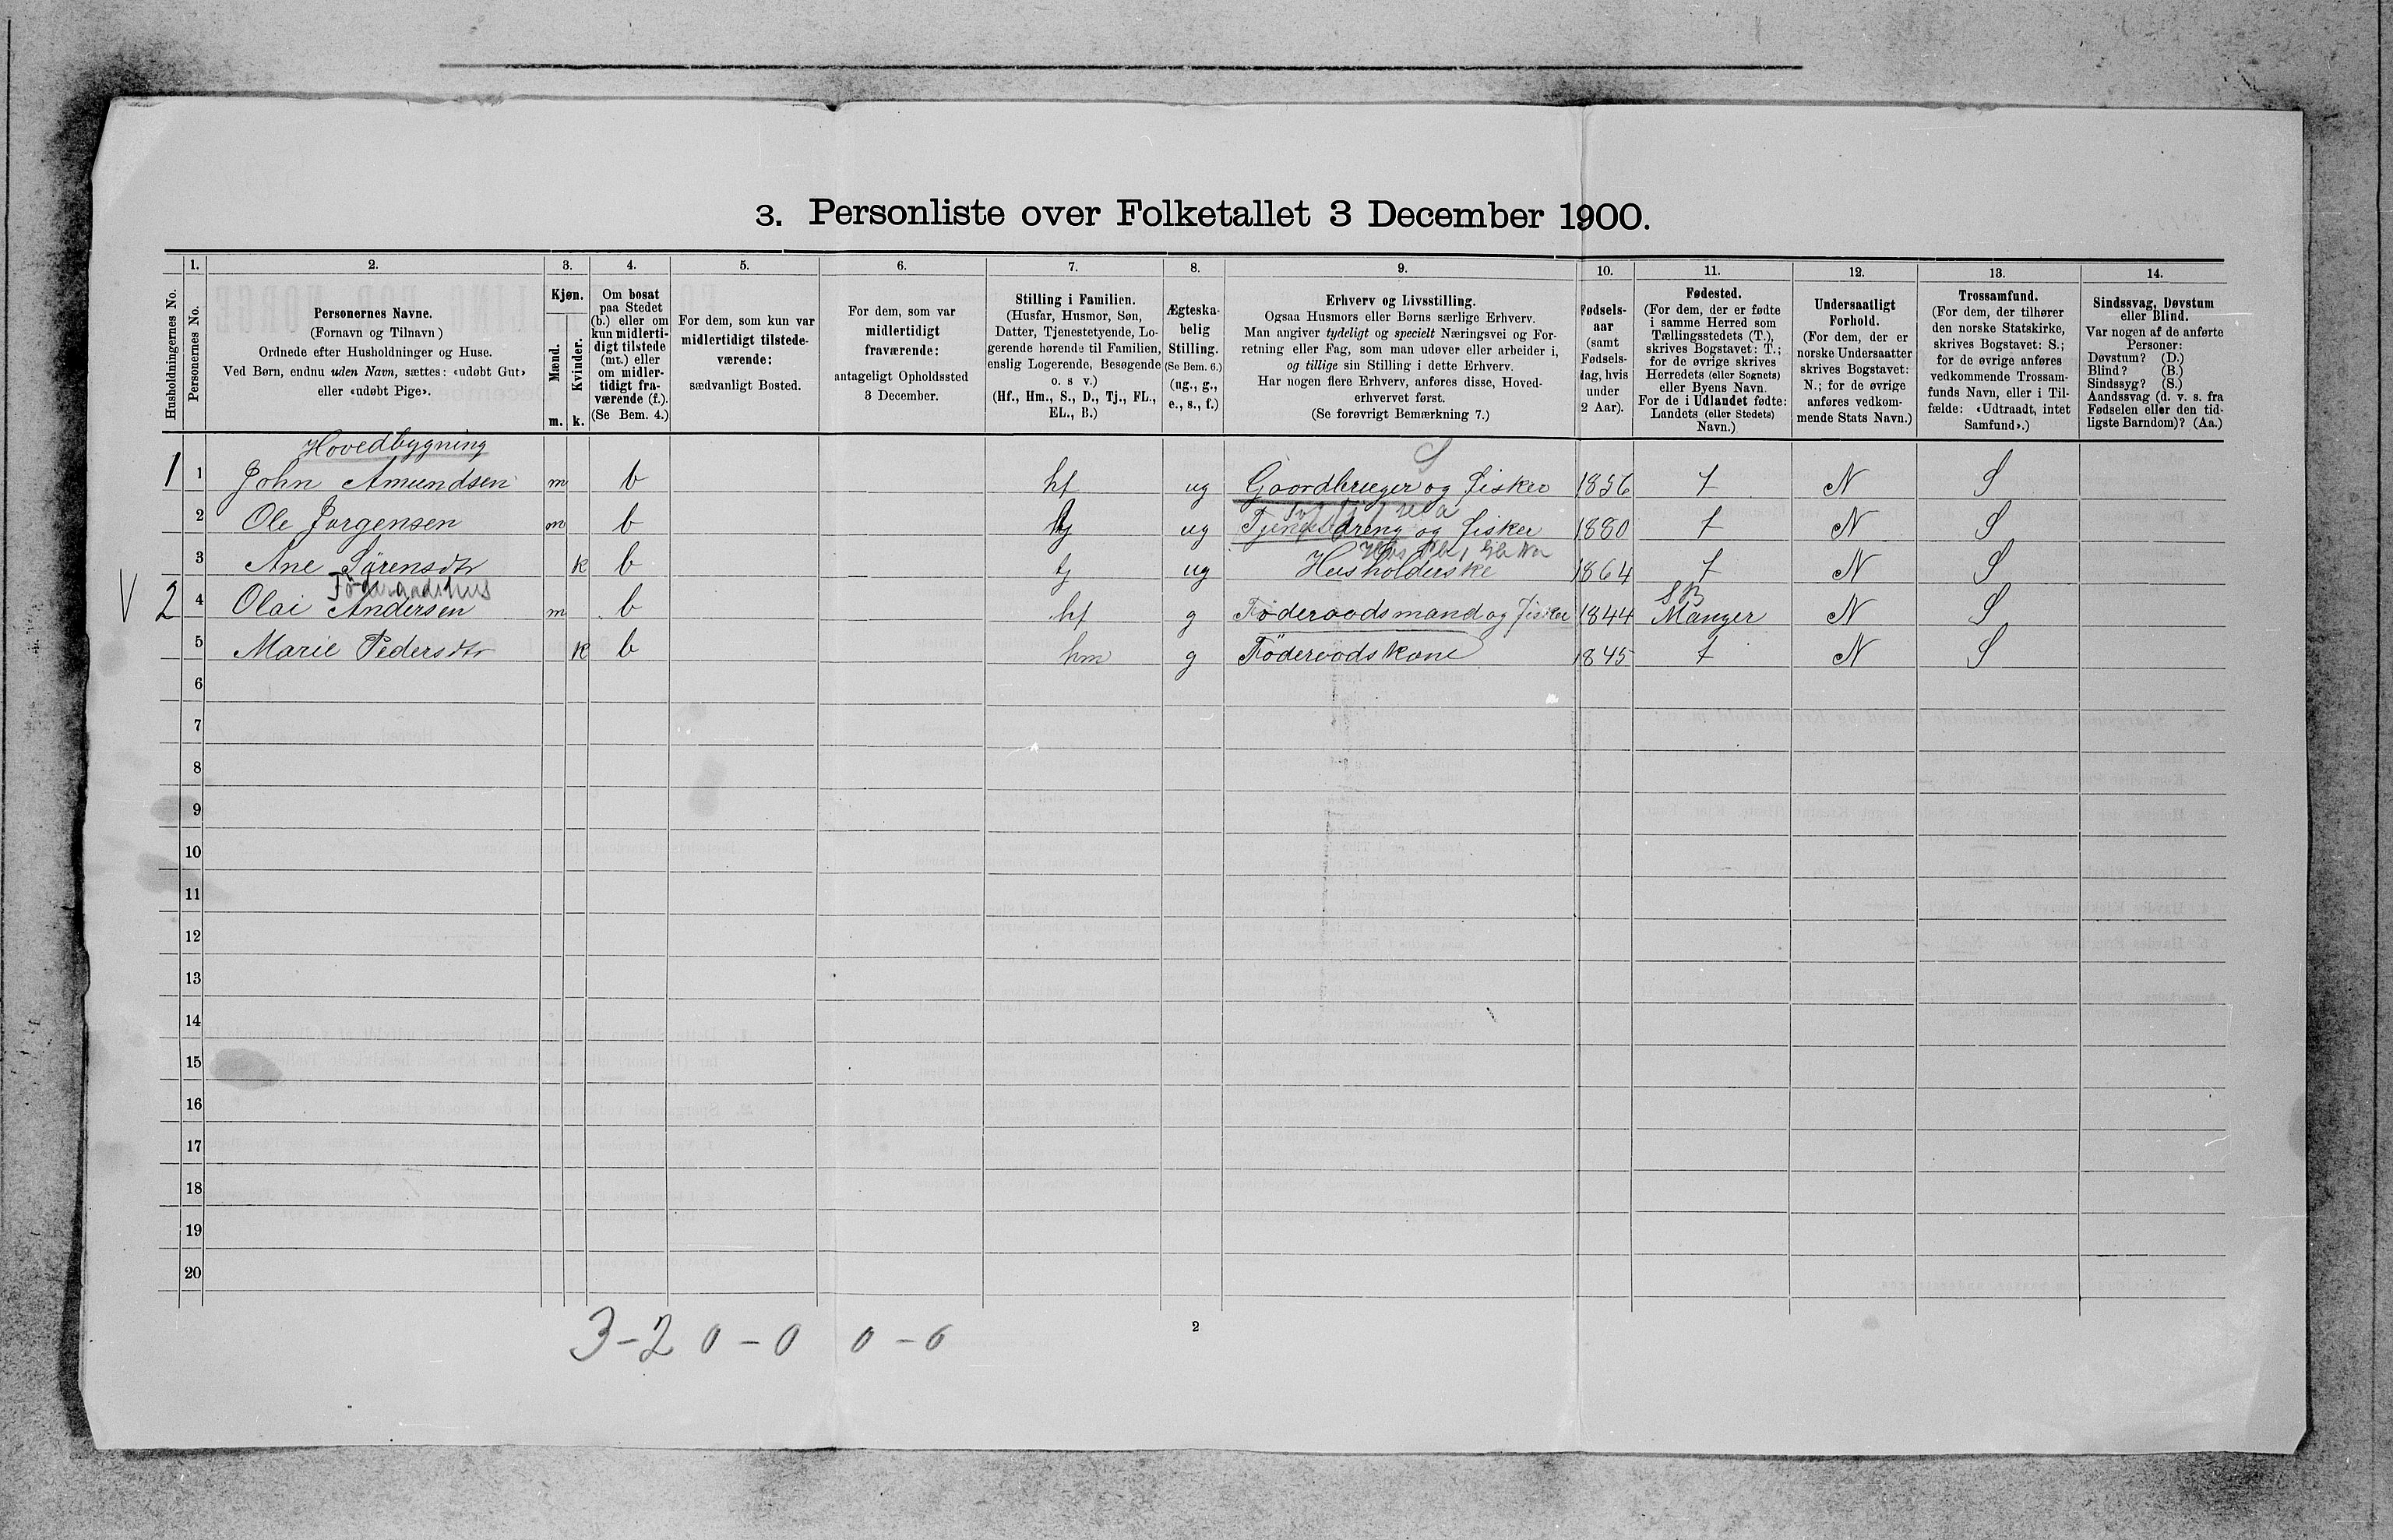 3. Personliste over Folketallet 3 December 1900.
1. 2. 3. 4. 5. 6. 7. 8. 9. 10. 11. 12. 13. 14.
Husholdningernes No.
Personernes No.
Personernes Navne.
(Fornavn og Tilnavn)
Ordnede efter Husholdninger og Huse.
Ved Børn, endnu uden Navn, sættes: «udøbt Gut»
eller «udøbt Pige».
Kjøn.
Mænd.
Kvinder.
m. k.
Om bosat
paa Stedet
(b.) eller om
kun midlerti-
digt tilstede
(mt.) eller
om midler-
tidigt fra-
værende (f.).
(Se Bem. 4.)
For dem, som kun var
midlertidigt tilstede-
værende:
sædvanligt Bosted.
For dem, som var
midlertidigt
fraværende:
antageligt Opholdssted
3 December.
Stilling i Familien.
(Husfar, Husmor, Søn,
Datter, Tjenestetyende, Lo-
gerende hørende til Familien,
enslig Logerende, Besøgende
o. s v.)
(Hf., Hm., S., D., Tj., FL.,
EL., B.)
Ægteska-
belig
Stilling.
(Se Bem. 6.)
(ug., g.,
e., s., f.)
Erhverv og Livsstilling.
Ogsaa Husmors eller Børns særlige Erhverv.
Man angiver tydeligt og specielt Næringsvei og For-
retning eller Fag, som man udøver eller arbeider i,
og tillige sin Stilling i dette Erhverv.
Har nogen flere Erhverv, anføres disse, Hoved-
erhvervet først.
(Se forøvrigt Bemærkning 7.)
Fødsels-
aar
(samt
Fødsels-
dag, hvis
under
2 Aar).
Fødested.
(For dem, der er fødte
i samme Herred som
Tællingsstedets (T.),
skrives Bogstavet: T.;
for de øvrige skrives
Herredets (eller Sognets)
eller Byens Navn.
For de i Udlandet fødte:
Landets (eller Stedets)
Navn.)
Undersaatligt
Forhold.
(For dem, der er
norske Undersaatter
skrives Bogstavet:
N.; for de øvrige
anføres vedkom-
mende Stats Navn.)
Trossamfund.
(For dem, der tilhører
den norske Statskirke,
skrives Bogstavet: S.;
for de øvrige anføres
vedkommende Trossam-
funds Navn, eller i Til-
fælde: «Udtraadt, intet
Samfund».)
Sindssvag, Døvstum
eller Blind.
Var nogen af de anførte
Personer:
Døvstum? (D.)
Blind? (B.)
Sindssyg? (S.)
Aandssvag (d. v. s. fra
Fødselen eller den tid-
ligste Barndom)? (Aa.)
Hovedbygning
S
1 1 John Amundsen m b hf ug Gaardbruger og fisker 1856 t N S
2 Ole Jørgensen m b tj ug Tjenestdreng og fisker 1880 t N S
3 Ane Sørensdtr k b tj ug Husholderske 1864 t N S
Föderaadshus
SB
V 2 4 Olai Andersen m b hf g Föderaadsmand og fisker 1844 Manger N S
5 Marie Pedersdtr k b hm g Föderaadskone 1845 t N S
6
7
8
9
10
11
12
13
14
15
16
17
18
19
20
3-2 0-0 0-0
2